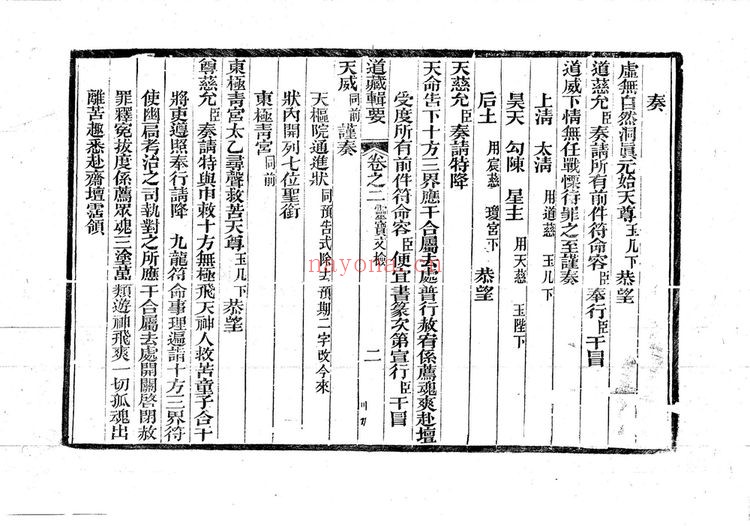 奏
虛無自然洞眞元始天尊玉几下恭望
道慈允臣奏請所有前件符命容臣奉行臣干冒
道威下情無任戰慄待罪之至謹奏
上清 太清 用道慈 玉几下
昊天 勾陳 星主 用天慈 玉陛下
后土 用宸慈 瓊宮下 恭望
天慈允臣奏請特降
天命告下十方三界應干合屬去處普行赦宥係薦魂爽赴壇
受度所有前件符命容臣便宜書篆次第宣行臣干冒
道藏輯要 卷之二 靈寶文檢 二
天威同前謹奏
天樞院通進狀同預告式除去預期二字改今來
狀內開列七位聖銜
東極青宮同前
東極青宮太乙尋聲救苦天尊玉几下恭望
尊慈允臣奏請特與申敕十方無極飛天神人救苦童子合干
將吏遵照奉行請降 九龍符命事理遍請十方三界符
使幽局考治之司執對之所應干合屬去處開關啓閉赦
罪釋寃拔度係薦眾魂三塗萬類遊神飛爽一切孤魂出
離苦趣悉赴齋壇霑領
nayona.cn